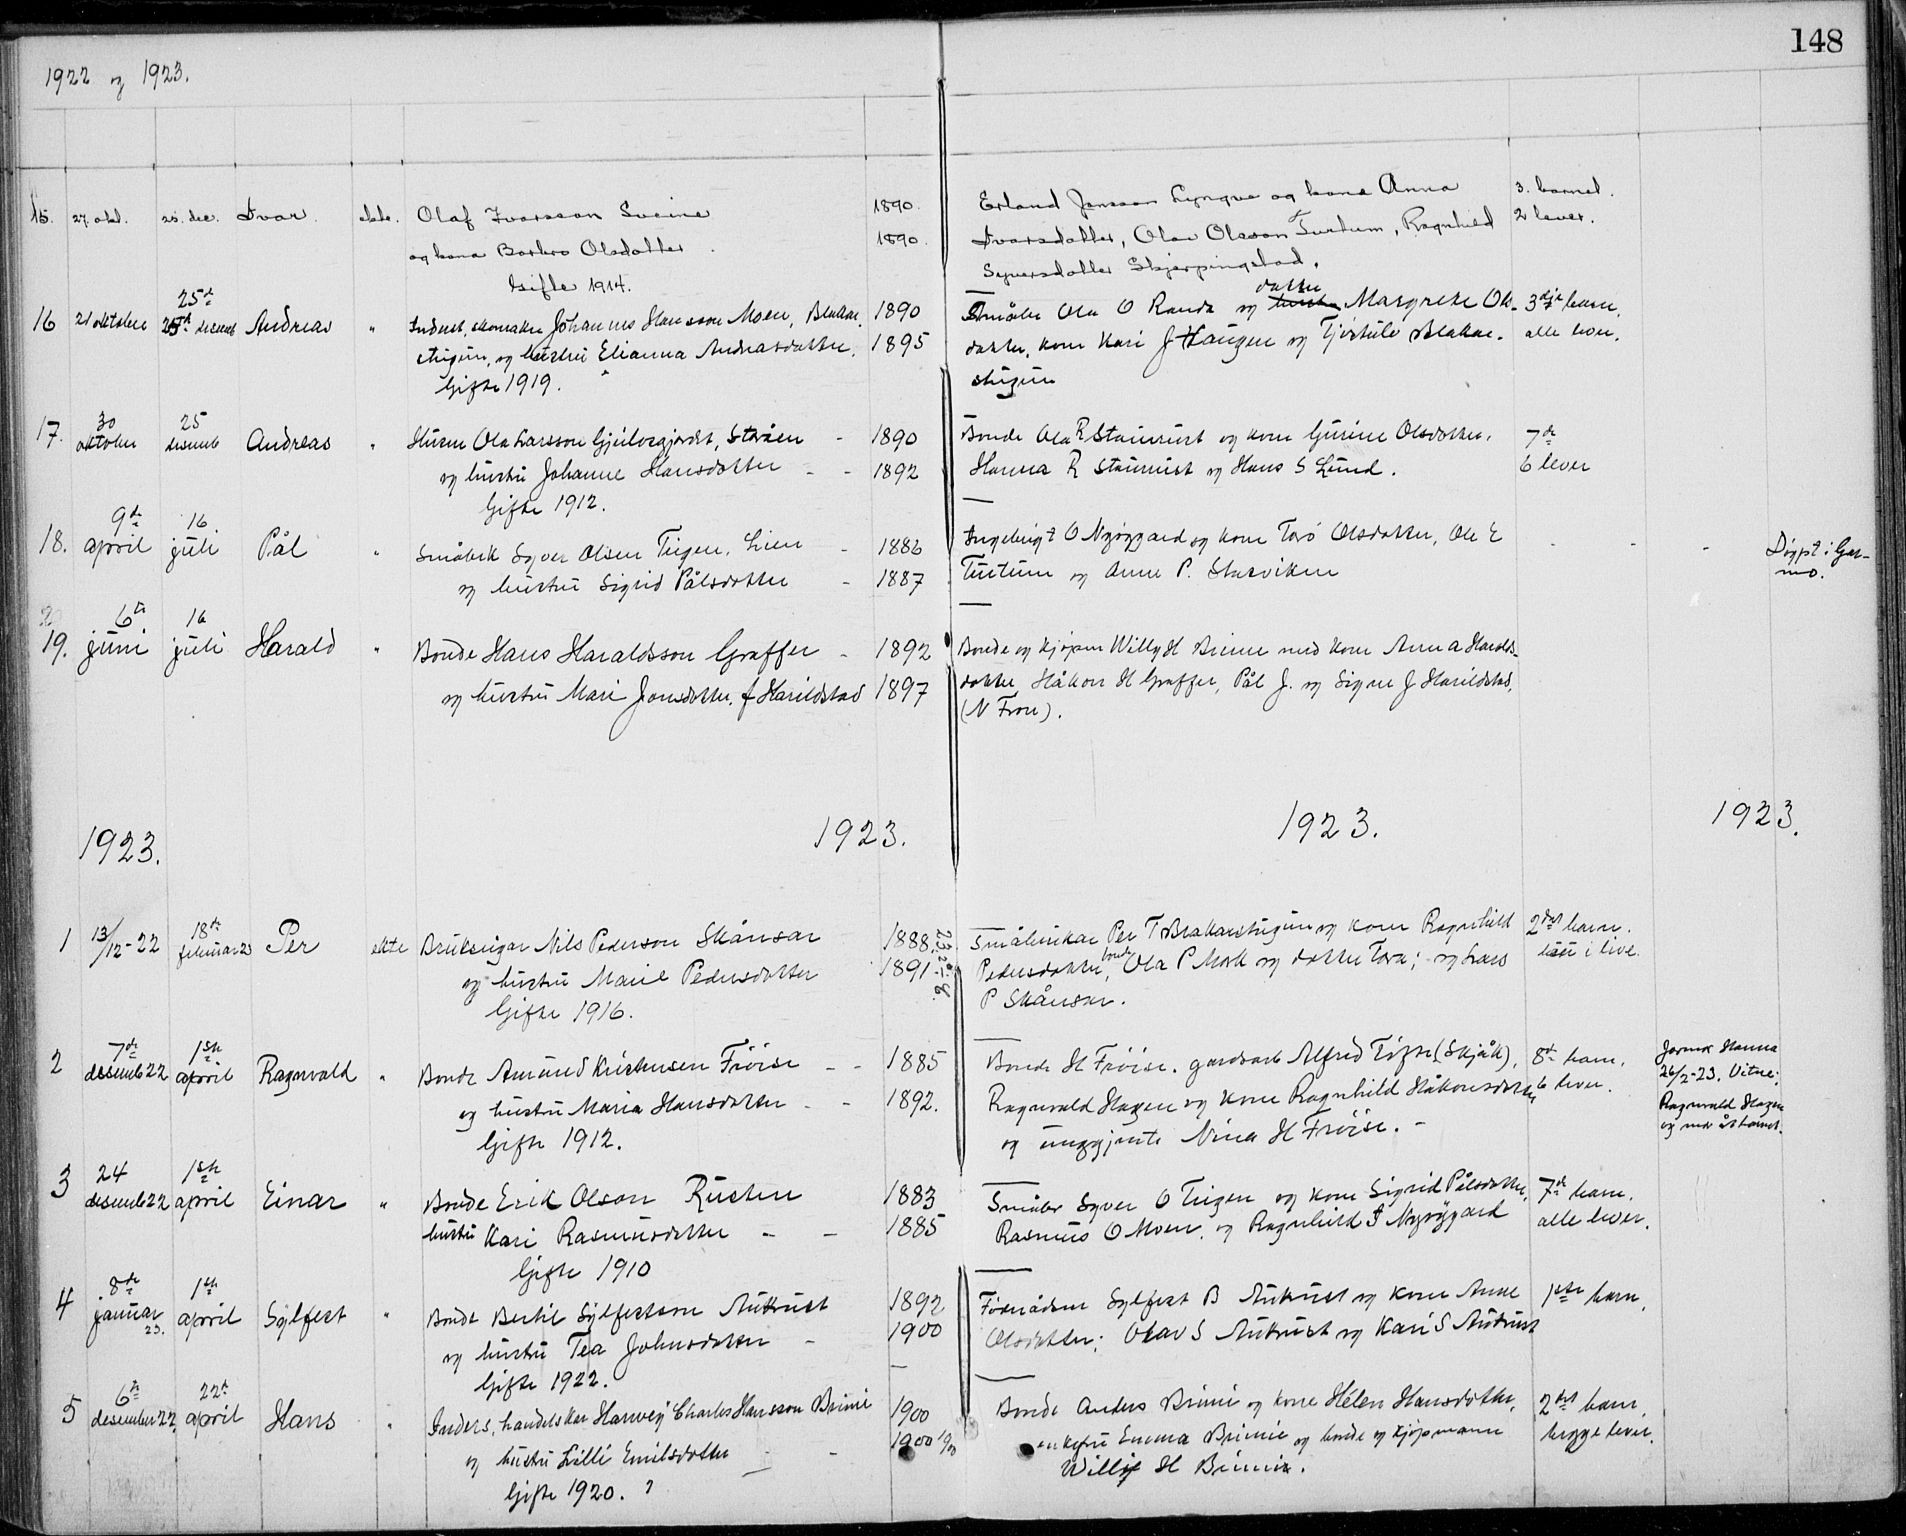 148
1922 og 1923.
15. 27. okt. 25. dec. Ivar. ekte. Olaf Ivarsson Sveine 1890.
og kona Barbro Olsdotter. 1890.
Gifte 1914.
Erland Jansson Lyngve og kona Anna
Ivarsdotter, Olav Olsson Turtum, Ragnhild
Syversdotter Skjerpingstad.
3. barnet.
2 lever.
16 21 oktober 25de desemb Andreas " Indust. skomaker Johannes Hansson Moen, Blakar- 1890
stugun, og hustru Elianna Andreasdotter. 1895
Gifte 1919.
Småbr Ola O Randa og dotter Margrete Ols-
dotter, kone Kari J Haugen og Tjøstulv Blakar-
stugun
3dje barn,
alle lever.
17. 30 oktober 25 desemb Andreas " Husm Ola Larsson Gjeilorgjordet, Stråen - 1890
og hustru Johanne Hansdotter - - 1892
Gifte 1912.
Bonde Ola R Staurust og kone Gurine Olsdotter,
Hanna R Staurust og Hans S Lund.
7de
6 lever
18. 9de april 16 juli Pål " Småbruk Syver Olsen Teigen, Lien - 1886
og hustru Sigrid Pålsdotter - 1887
Ingebrigt O Nyøygard og kone Tor Olsdotter, Ole E
Turtum og Anne P. Storviken
- - -
Døypt i Gar-
mo.
19. 6te juni 16 juli Harald " Bonde Hans Haraldsson Graffer - 1892
og hustru Mari Jonsdotter. f Harildstad 1897
Bonde og kjøpm Willy H Brimi med kone Anna Haralds-
dotter, Håkon H Graffer, Pål J. og Signe J Harildstad,
(N Fron).
1923. 1923. 1923. 1923.
1 13/12-22 18de februar 23 Per ekte Brukseigar Nils Pederson Skånsar 1888.
og hustru Marie Pedersdotter 1891
Gifte 1916.
Småbrukar Per T Blakarstugun og kone Ragnhild
Pedersdotter, bonde Ola P Mork og dotter Tora; og Lars
P Skånsar.
2det barn.
i live.
2 7de desemb 22 1ste april Ragnvald " Bonde Amund Kristensen Frøise - - 1885
og hustru Maria Hansdotter - - 1892.
Gifte 1912.
Bonde H Frøise. gardsarb Alfred Tofte (Skjåk),
Ragnvald Hagen og kone Ragnhild Håkonsdotter
og ungjente Nina H Frøise. -
8de barn.
6 lever.
Jormor Hanna
26/2-23. Vitne:
Ragnvald Hagen
3 24 desemb 22 1ste april Einar " Bonde Erik Olson Rusten 1883
hustru Kari Rasmusdotter - - 1885
Gifte 1910
Småbr Syver O Teigen og kone Sigrid Pålsdotter,
Rasmus O Moen, og Ragnhild I Nyøygard
7de barn.
alle lever.
4 8de januar 23. 1ste april Sylfest " Bonde Bertil Sylfestson Aukrust 1892
og hustru Tea Johnsdotter - 1900
Gifte 1922.
Føderådsm Sylfest B Aukrust og kone Anne
Olsdotter; Olav S Aukrust og Kari S Aukrust
1ste barn.
5 6te desember 22. 22de april Hans " Inders, handelskar Harwey Charles Hansson Brimi 1900
og hustru Lilli Emilsdotter - - 1900
Gifte 1920. ?
Bonde Anders Brimi og kone Helen Hansdotter,
enkefru Emma Brimi og bonde og kjøpmann
Willy H Brimi.
2det barn.
begge lever.